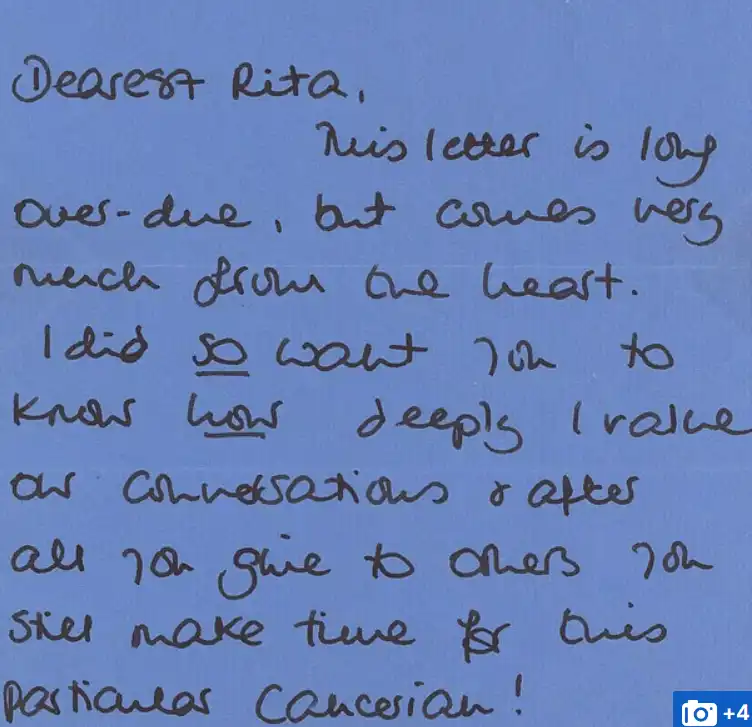 Dearest Rita,
This letter is long
over-due, but comes very
much from the heart.
I did so want you to
know how deeply I value
our conversations & after
all you give to others you
still make time for this
particular Cancerian!
+4